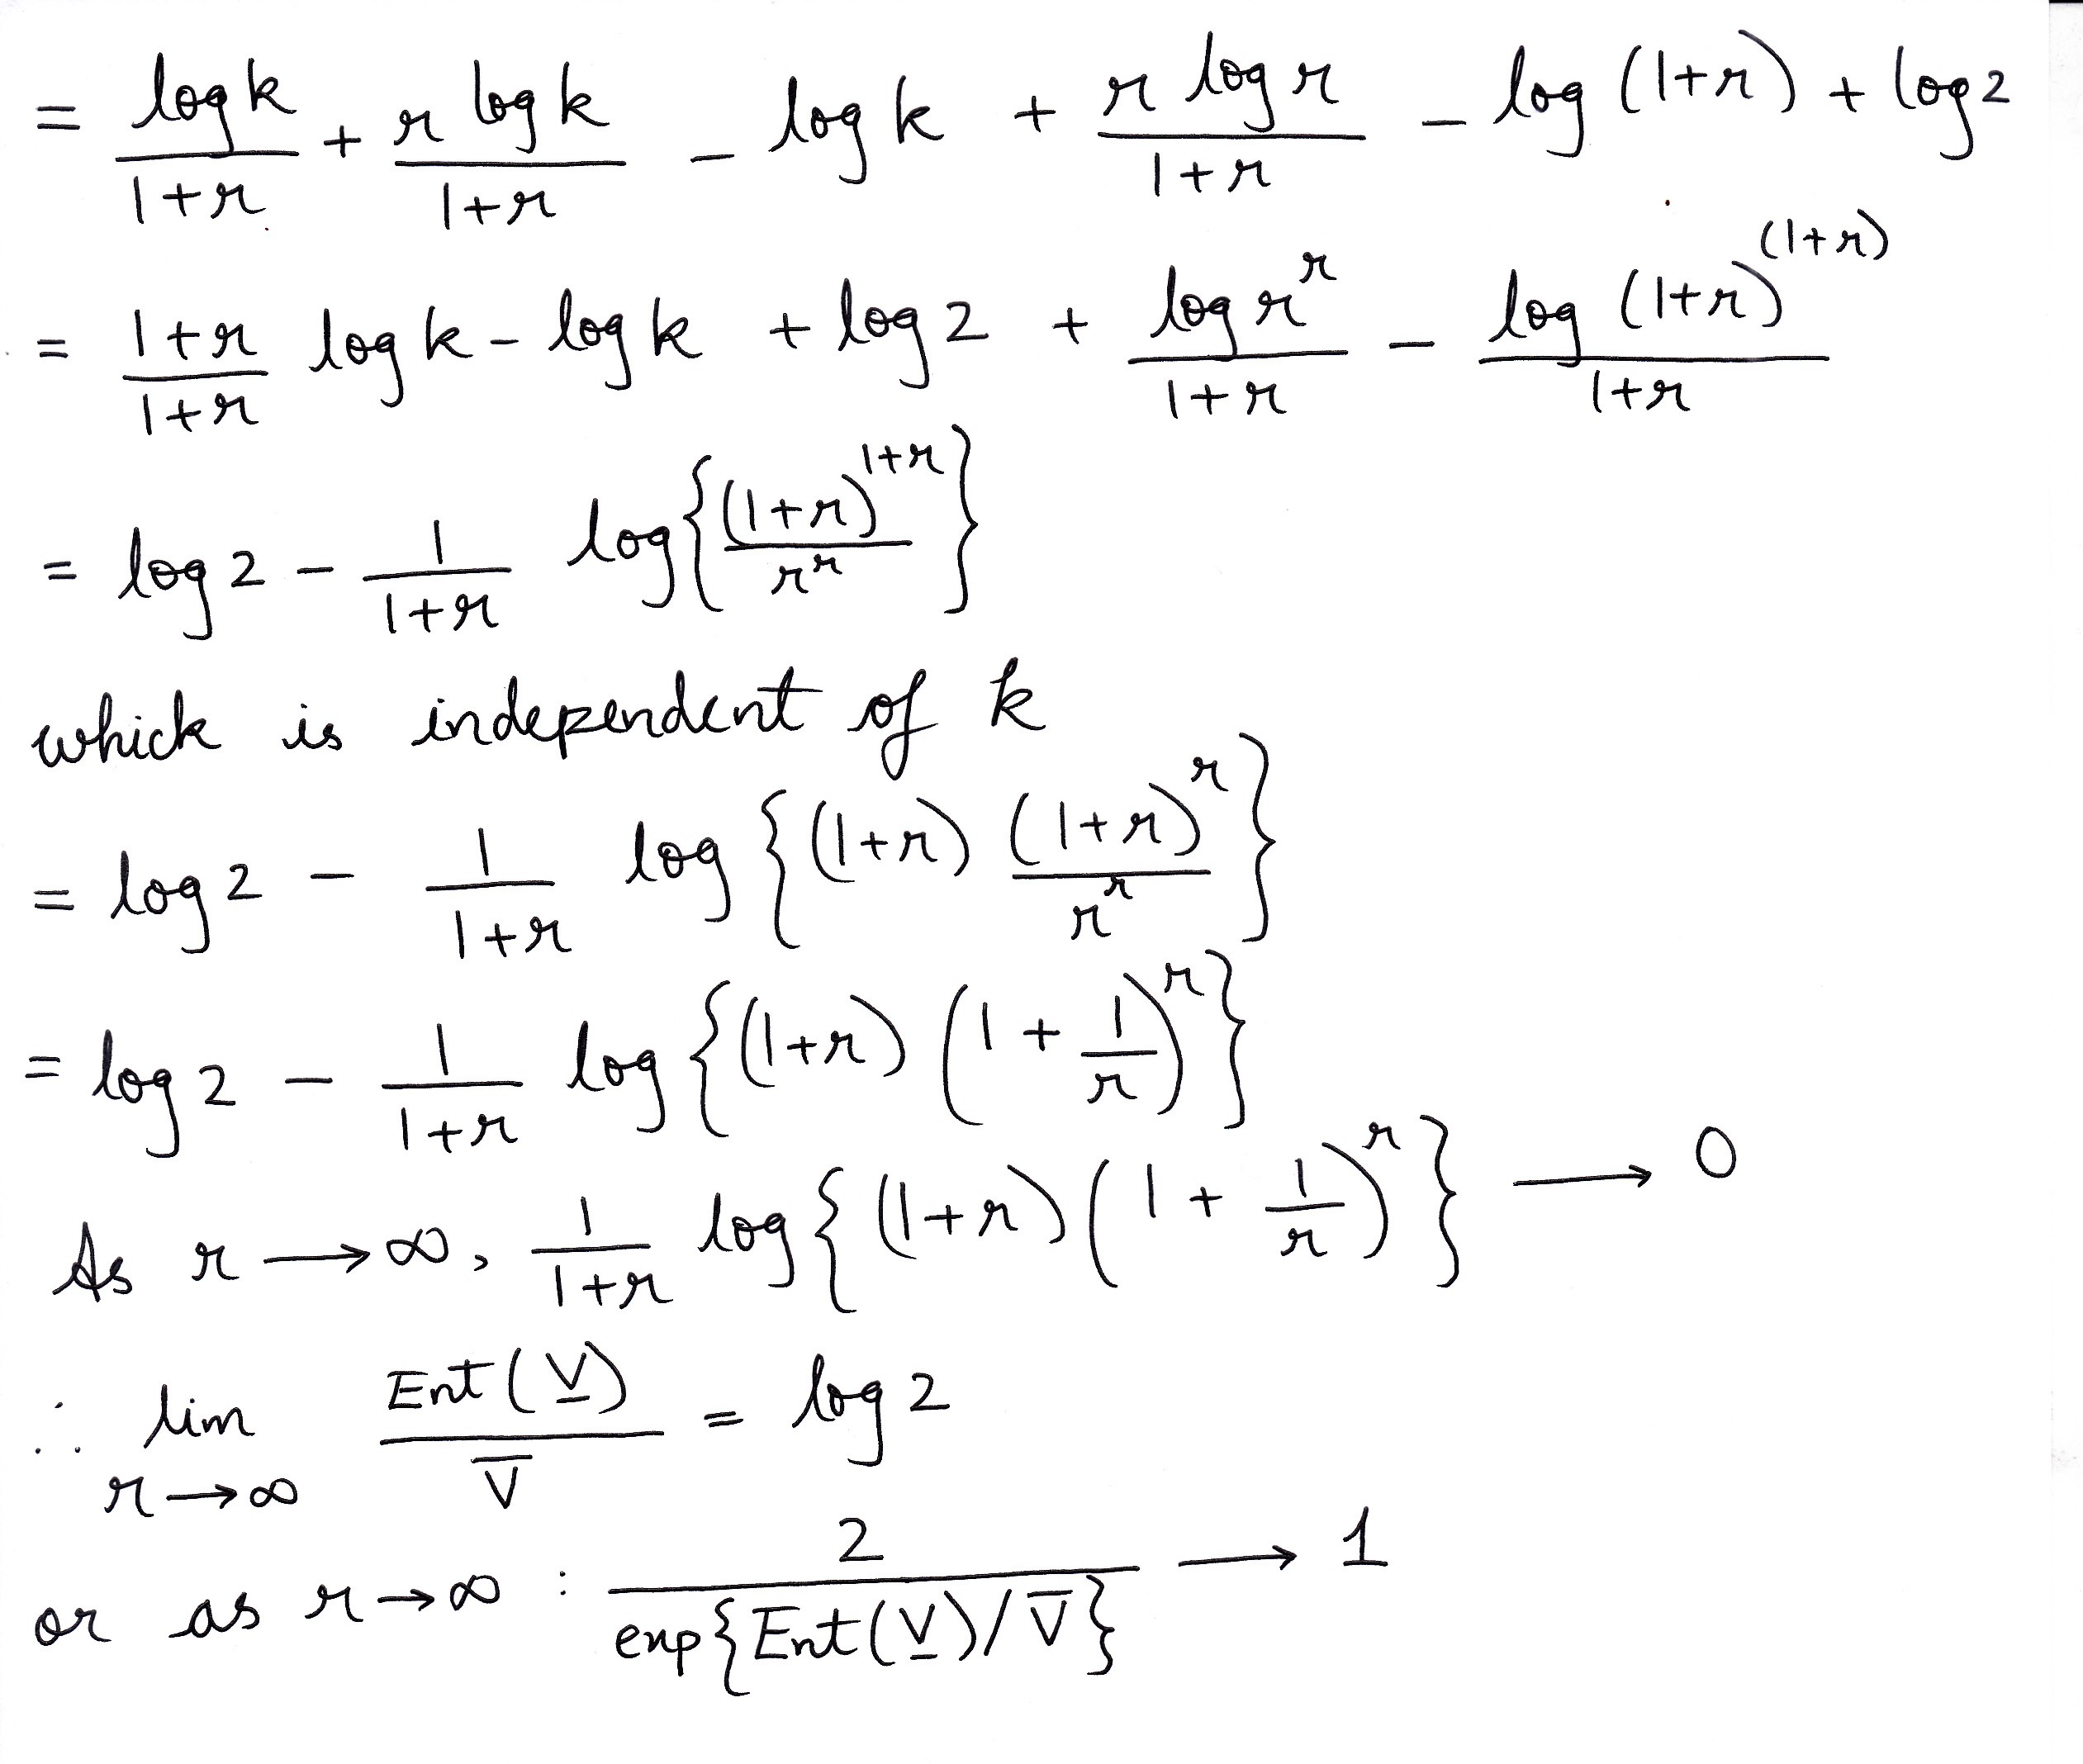 = \frac{\log k}{1+r} + \frac{r \log k}{1+r} - \log k + \frac{r \log r}{1+r} - \log (1+r) + \log 2
= \frac{1+r}{1+r} \log k - \log k + \log 2 + \frac{\log r^r}{1+r} - \frac{\log (1+r)^{(1+r)}}{1+r}
= \log 2 - \frac{1}{1+r} \log \left\{ \frac{(1+r)^{1+r}}{r^r} \right\}
which is independent of k
= \log 2 - \frac{1}{1+r} \log \left\{ (1+r) \frac{(1+r)^r}{r^r} \right\}
= \log 2 - \frac{1}{1+r} \log \left\{ (1+r) \left( 1 + \frac{1}{r} \right)^r \right\}
As r ⟶ ∞, \frac{1}{1+r} \log \left\{ (1+r) \left( 1 + \frac{1}{r} \right)^r \right\} ⟶ 0
∴ \lim_{r→∞} \frac{Ent(\underline{V})}{\overline{V}} = \log 2
or as r→∞ : \frac{2}{exp\{Ent(\underline{V})/\overline{V}\}} ⟶ 1